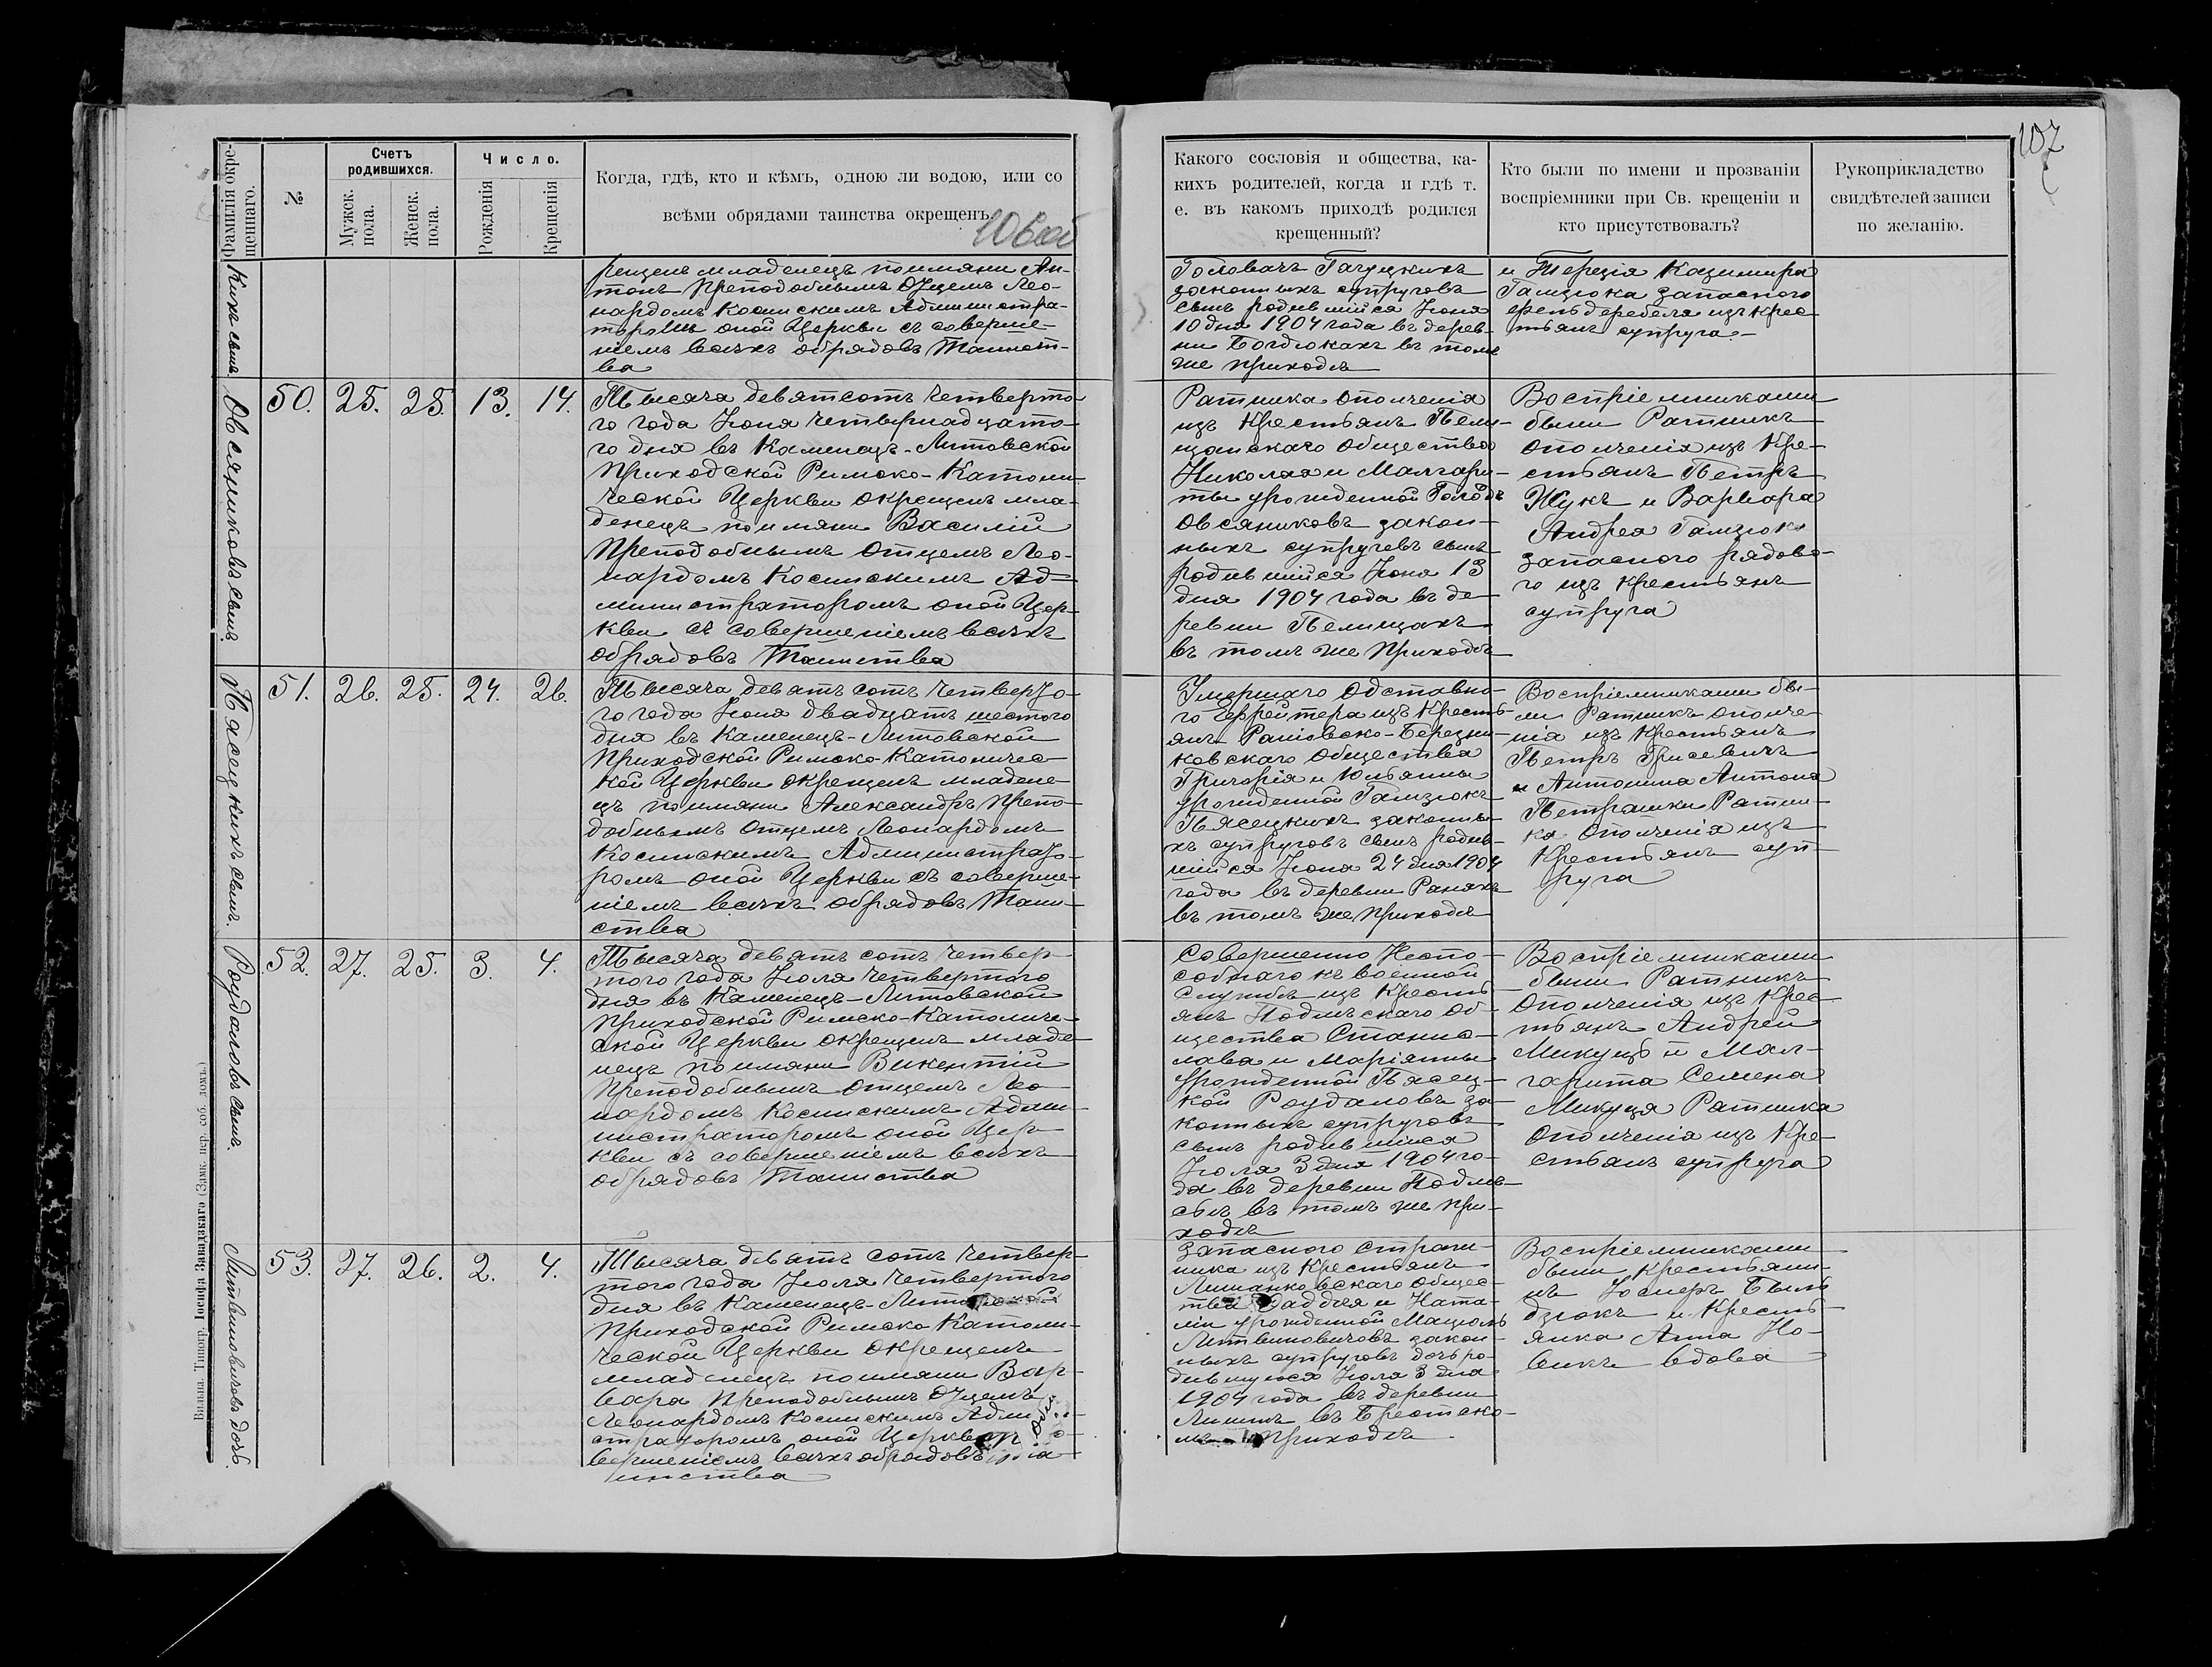 107
Фамилія окре-
щеннаго.
№
Счетъ
родившихся.
Мужск.
пола.
Женск.
пола.
Число.
Рожденія
Крещенія
Когда, гдѣ, кто и кѣмъ, одною ли водою, или со
всѣми обрядами таинства окрещенъ.
Какого сословія и общества, ка-
кихъ родителей, когда и гдѣ т.
е. въ какомъ приходѣ родился
крещенный?
Кто были по имени и прозваніи
воспріемники при Св. крещеніи и
кто присутствовалъ?
Рукоприкладство
свидѣтелей записи
по желанію.
кихъ сынъ
рещенъ младенецъ по имяни Ан-
тонъ Преподобнымъ Отцемъ Лео-
нардомъ Косинскимъ Администра-
торомъ оной Церкви съ соверше-
ніемъ всѣхъ обрядовъ Таинст-
ва
Головачъ Гачуцкихъ
законныхъ супруговъ
сынъ родившійся Іюня
10 дня 1904 года въ дерев-
ни Богдюкахъ въ томъ
же приходѣ
и Терезія Казимира
Гамзюка запасного
ефельдфебеля изъ крес-
тьянъ супруга.
Овсяниковъ сынъ
50. 25. 25. 13. 14.
Тысяча девятсотъ четверто-
го года Іюня четвернадцато-
го дня въ Каменецъ-Литовской
Приходской Римско-Католи-
ческой Церкви окрещенъ мла-
денецъ по имяни Василій
Преподобнымъ Отцемъ Лео-
нардомъ Косинскимъ Ад-
министраторомъ оной Цер-
кви съ совершеніемъ всѣхъ
обрядовъ Таинства
Ратника ополченія
изъ Крестьянъ Пели-
щанскаго общества
Николая и Малгари-
ты урожденной
Овсяниковъ закон-
ныхъ супруговъ сынъ
родившійся Іюня 13
дня 1904 года въ де-
ревни Пелищахъ
въ томъ же приходѣ
Воспріемниками
были Ратникъ
ополченія изъ Кре-
стьянъ Петръ
Жукъ и Варвара
Андрея Гамзюка
запасного рядово-
го изъ крестьянъ
супруга
Пясецкихъ сынъ.
51. 26. 25. 24. 26.
Тысяча девятъ сотъ четверто-
го года Іюня двадцать шестого
дня въ Каменецъ-Литовской
Приходской Римско-Католичес-
кой Церкви окрещенъ младене-
цъ по имяни Александръ Препо-
добнымъ Отцемъ Леонардомъ
Косинскимъ Администрато-
ромъ оной Церкви съ соверше-
ніемъ всѣхъ обрядовъ Таин-
ства
Умершаго Одставно-
го Гефрейтера изъ Кресть-
янъ Ратовско-Березни-
ковскаго общества
Григорія и Юльянны
урожденной Гамзюкъ
Пясецкихъ законны-
хъ супруговъ сынъ родив-
шійся Іюня 24 дня 1904
года въ деревни Раняхъ
въ томъ же приходѣ
Воспріемниками бы-
ли Ратникъ ополче-
нія изъ Крестьянъ
Петръ Грисевичъ
и Антонина Антона
Петрашки Ратни-
ка Ополченія изъ
Крестьянъ суп-
руга
Роудаловъ сынъ.
52. 27. 25. 3. 4.
Тысяча девятъ сотъ четвер-
того года Іюля четвертого
дня въ Каменецъ-Литовской
Приходской Римско-Католиче-
ской Церкви окрещенъ младе-
нецъ по имяни Викентій
Преподобнымъ Отцемъ Лео-
нардомъ Косинскимъ Адми-
нистраторомъ оной Цер-
кви съ совершеніемъ всѣхъ
обрядовъ Таинства
Совершенно Неспо-
собного къ военной
Службѣ изъ Кресть-
янъ об-
щества Станис-
лава и Маріянны
Урожденной Пясец-
кой Роудаловъ за-
конныхъ супруговъ
сынъ родившійся
Іюля 3 дня 1904 го-
да въ деревни
въ томъ же при-
ходѣ
Воспріемниками
были Ратникъ
Ополченія изъ Крес-
тьянъ Андрей
Микуцъ и Мал-
гарита Семена
Микуця Ратника
Ополченія изъ Кре-
стьянъ супруга
Литвиновичовъ дочь.
53. 27. 26. 2. 4.
Тысяча девятъ сотъ четвер-
того года Іюля четвертого
дня въ Каменецъ-Литовской
Приходской Римско Католи-
ческой Церкви окрещенъ
младенецъ по имяни Вар-
вара Преподобнымъ Отцемъ
Леонардомъ Косинскимъ Адми-
страторомъ оной Церкви
вершеніемъ всѣхъ обрядовъ Та-
инства
Запасного Стражн-
ника изъ Крестьянъ
общес-
тва Фаддѣя и Ната-
ліи урожденной
Литвиновичовъ закон-
ныхъ супруговъ дочь ро-
дившуюся Іюля 3 дня
1904 года въ деревни
въ Брестско-
мъ Приходѣ
Воспріемниками
были крестьяни-
нъ Юсперъ
и кресть-
янка Анна Но-
викъ вдова
Вильна. Типогр. Іосифа Завадзкаго (Замк. пер. соб. домъ.)